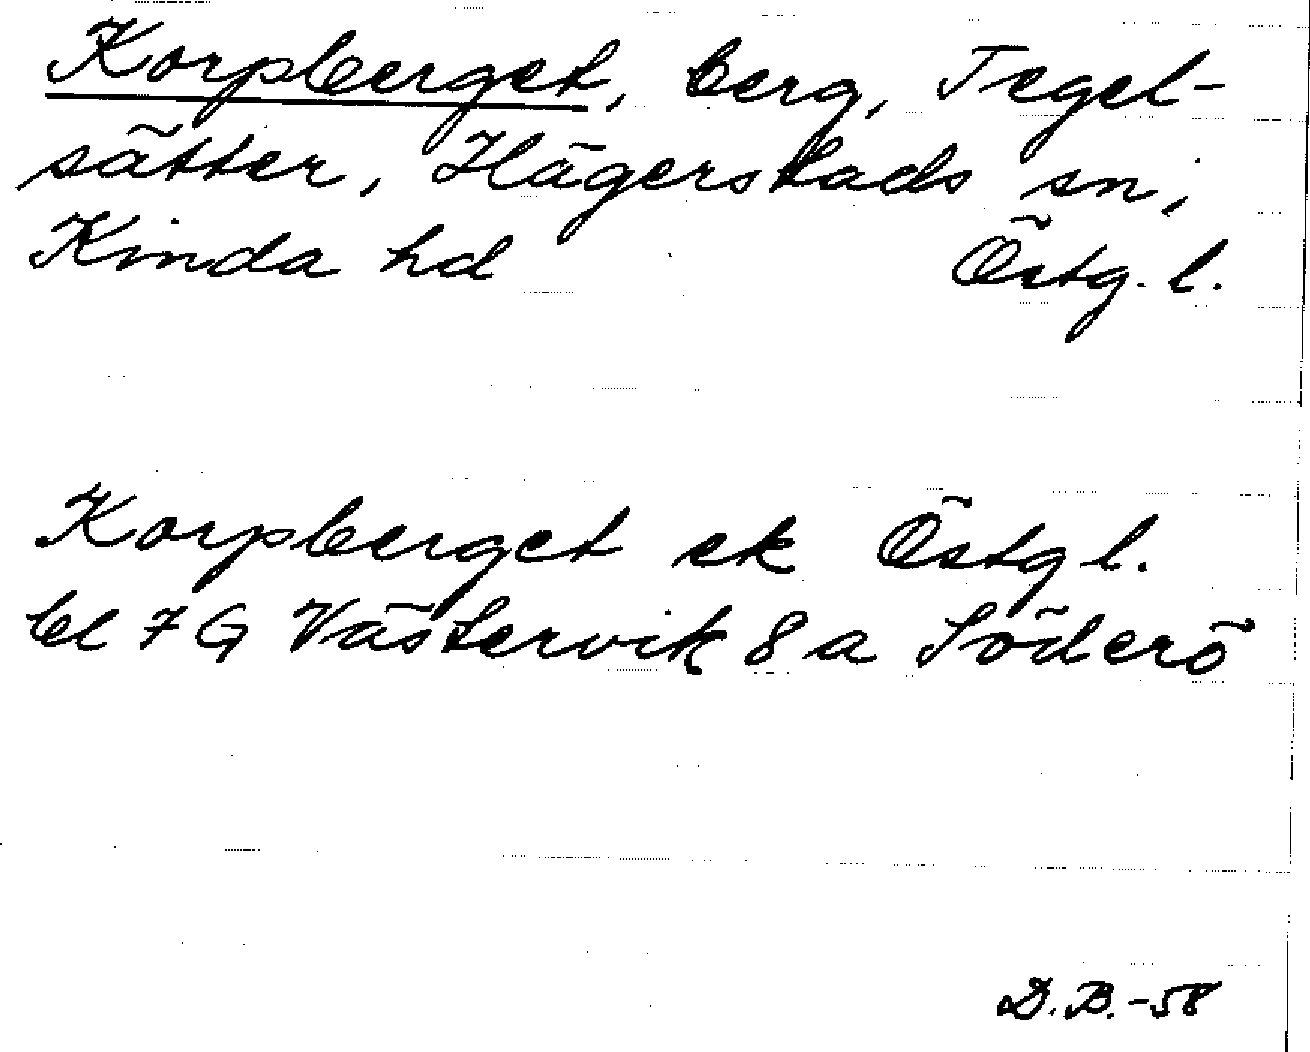 Korpberget, berg, Tegel-
sätter, Hägerstads sn,
Kinda hd Östg. l.
Korpberget ek Östg l.
bl 7 G Västervik 8 a Söderö
D.B.-58